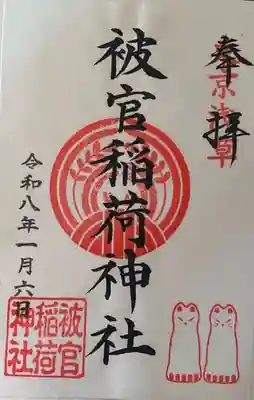 奉拝
東京浅草
被官稲荷神社
令和八年一月六日
被官
稲荷
神社